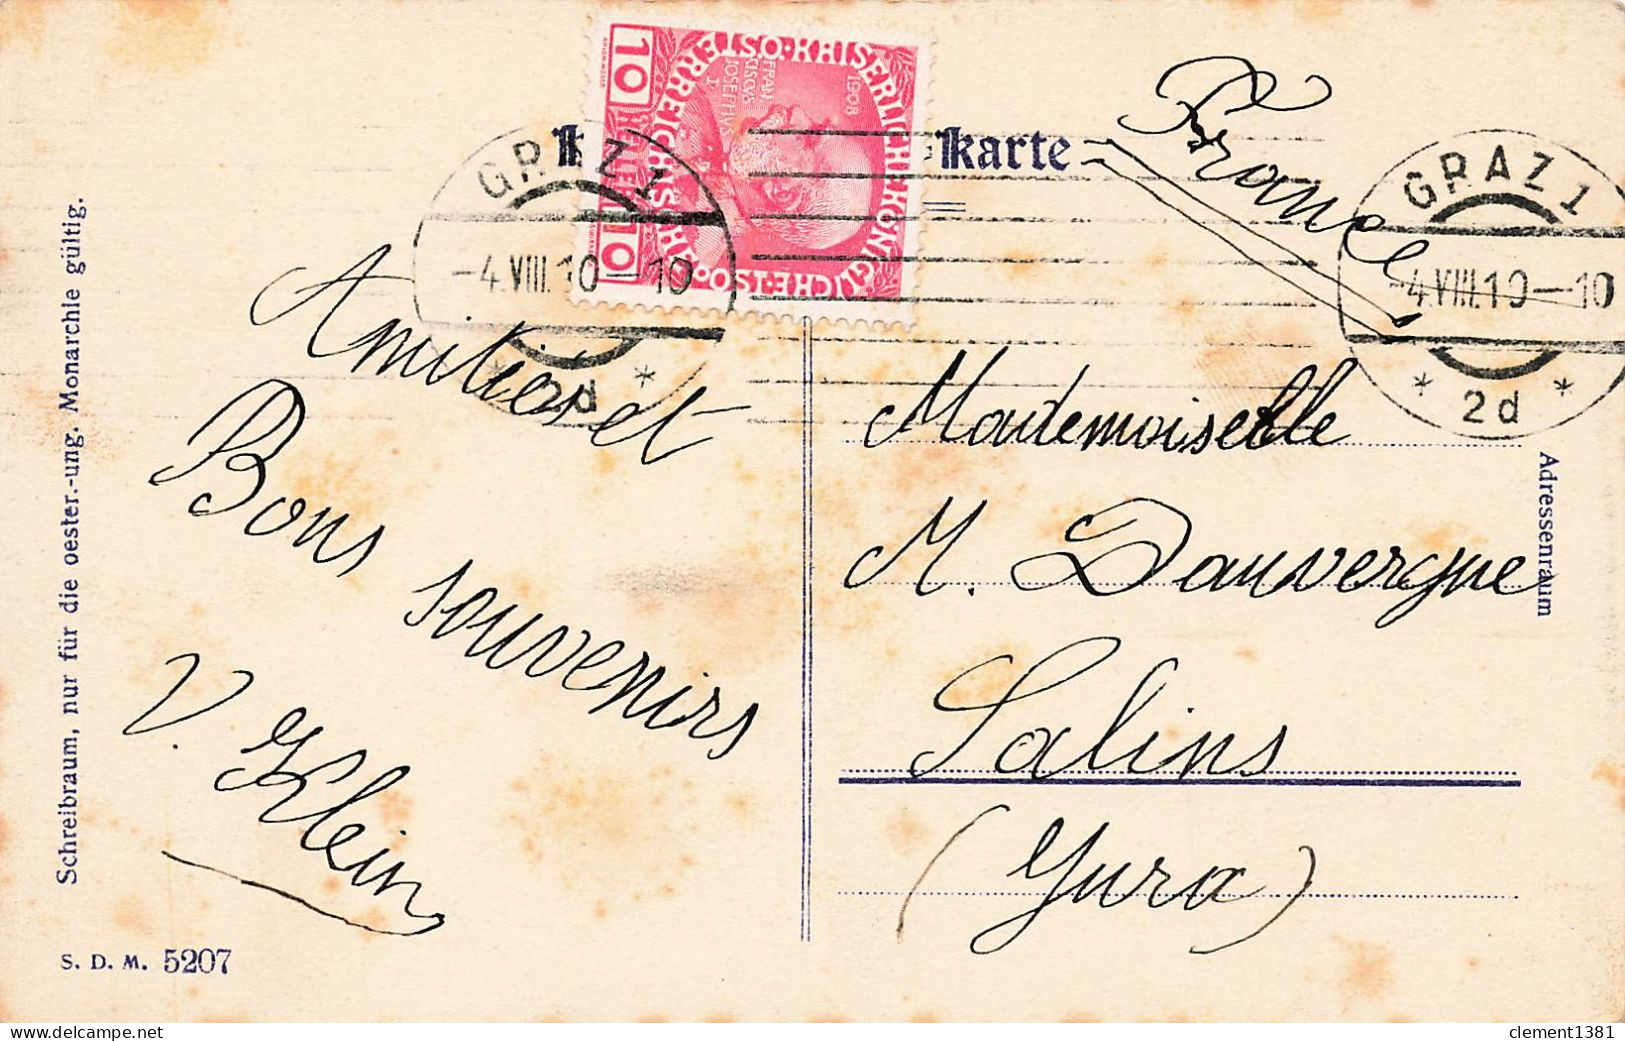 karte
France
GRAZ 1
-4.VIII.10-10
* 2d *
GRAZ 1
-4.VIII.10-10
* 2d *
KAISERLICHE KÖNIGLICHE ÖSTERREICHISCHE POST
1908
FRAN
CISCVS
IOSEPHVS
I.
10 HELLER 10
Amitiés et
Bons souvenirs
V. Klein
Mademoiselle
M. Dauvergne
Salins
(Jura)
Adressenraum
Schreibraum, nur für die oester.-ung. Monarchie gültig.
S. D. M. 5207
clement1381